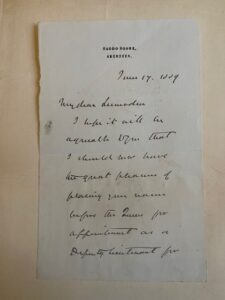 HADDO HOUSE,
ABERDEEN.
June 17. 1889
My dear Lumsden
I hope it will be
agreeable to you that
I should now have
the great pleasure of
placing your name
before the Queen for
appointment as a
Deputy Lieutenant for